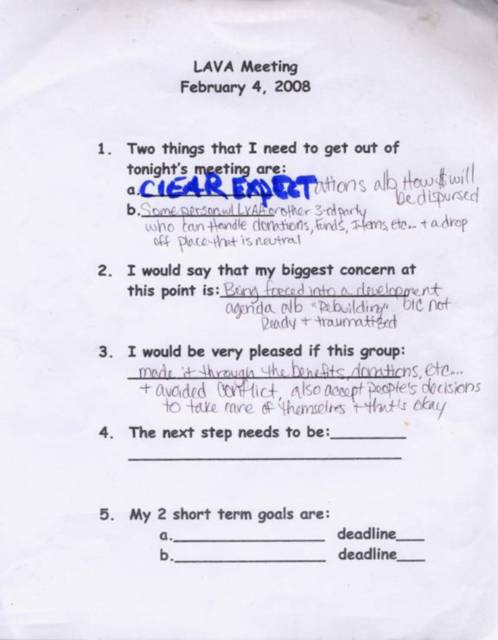 LAVA Meeting
February 4, 2008
1. Two things that I need to get out of
tonight's meeting are:
a. CLEAR EXPECTations a/b How $ will
be dispursed
b. Some person w/ LVAA or other 3rd party
who can Handle donations, Funds, Items, etc... + a drop
off place that is neutral
2. I would say that my biggest concern at
this point is: Being forced into a development
agenda a/b "Rebuilding" b/c not
Ready + traumatized
3. I would be very pleased if this group:
made it through the benefits, donations, etc...
+ avoided Conflict, also accept people's decisions
to take care of themselves + that's okay
4. The next step needs to be:________
5. My 2 short term goals are:
a.__________________ deadline___
b.__________________ deadline___